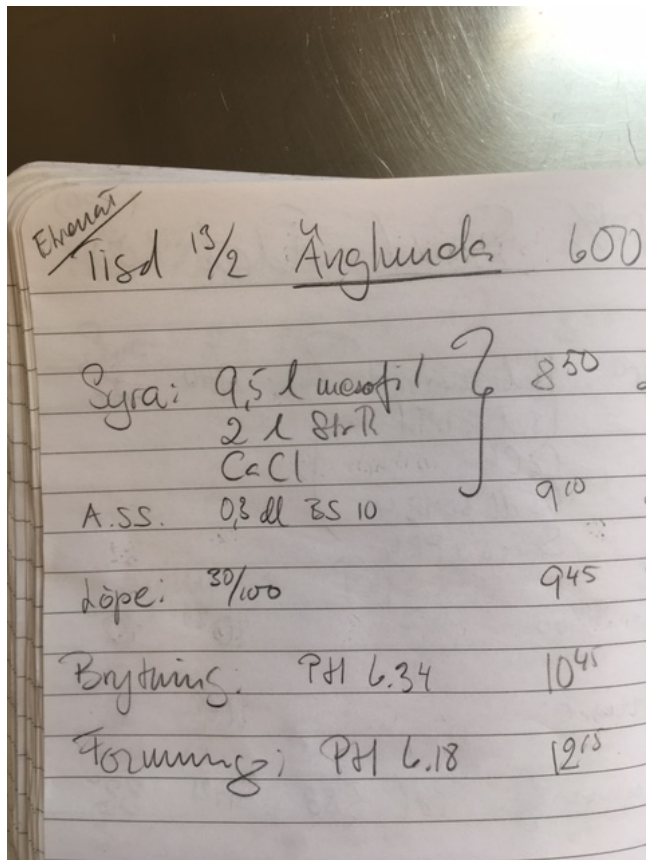 Tisd 13/2 Änglunda 600
Syra: 9,5 l mesofil } 8 50
2 l Str R
CaCl
A.SS. 0,3 dl BS 10 9 10
Löpe: 30/100 9 45
Brytning: PH 6.34 10 45
Formning: PH 6.18 12 15